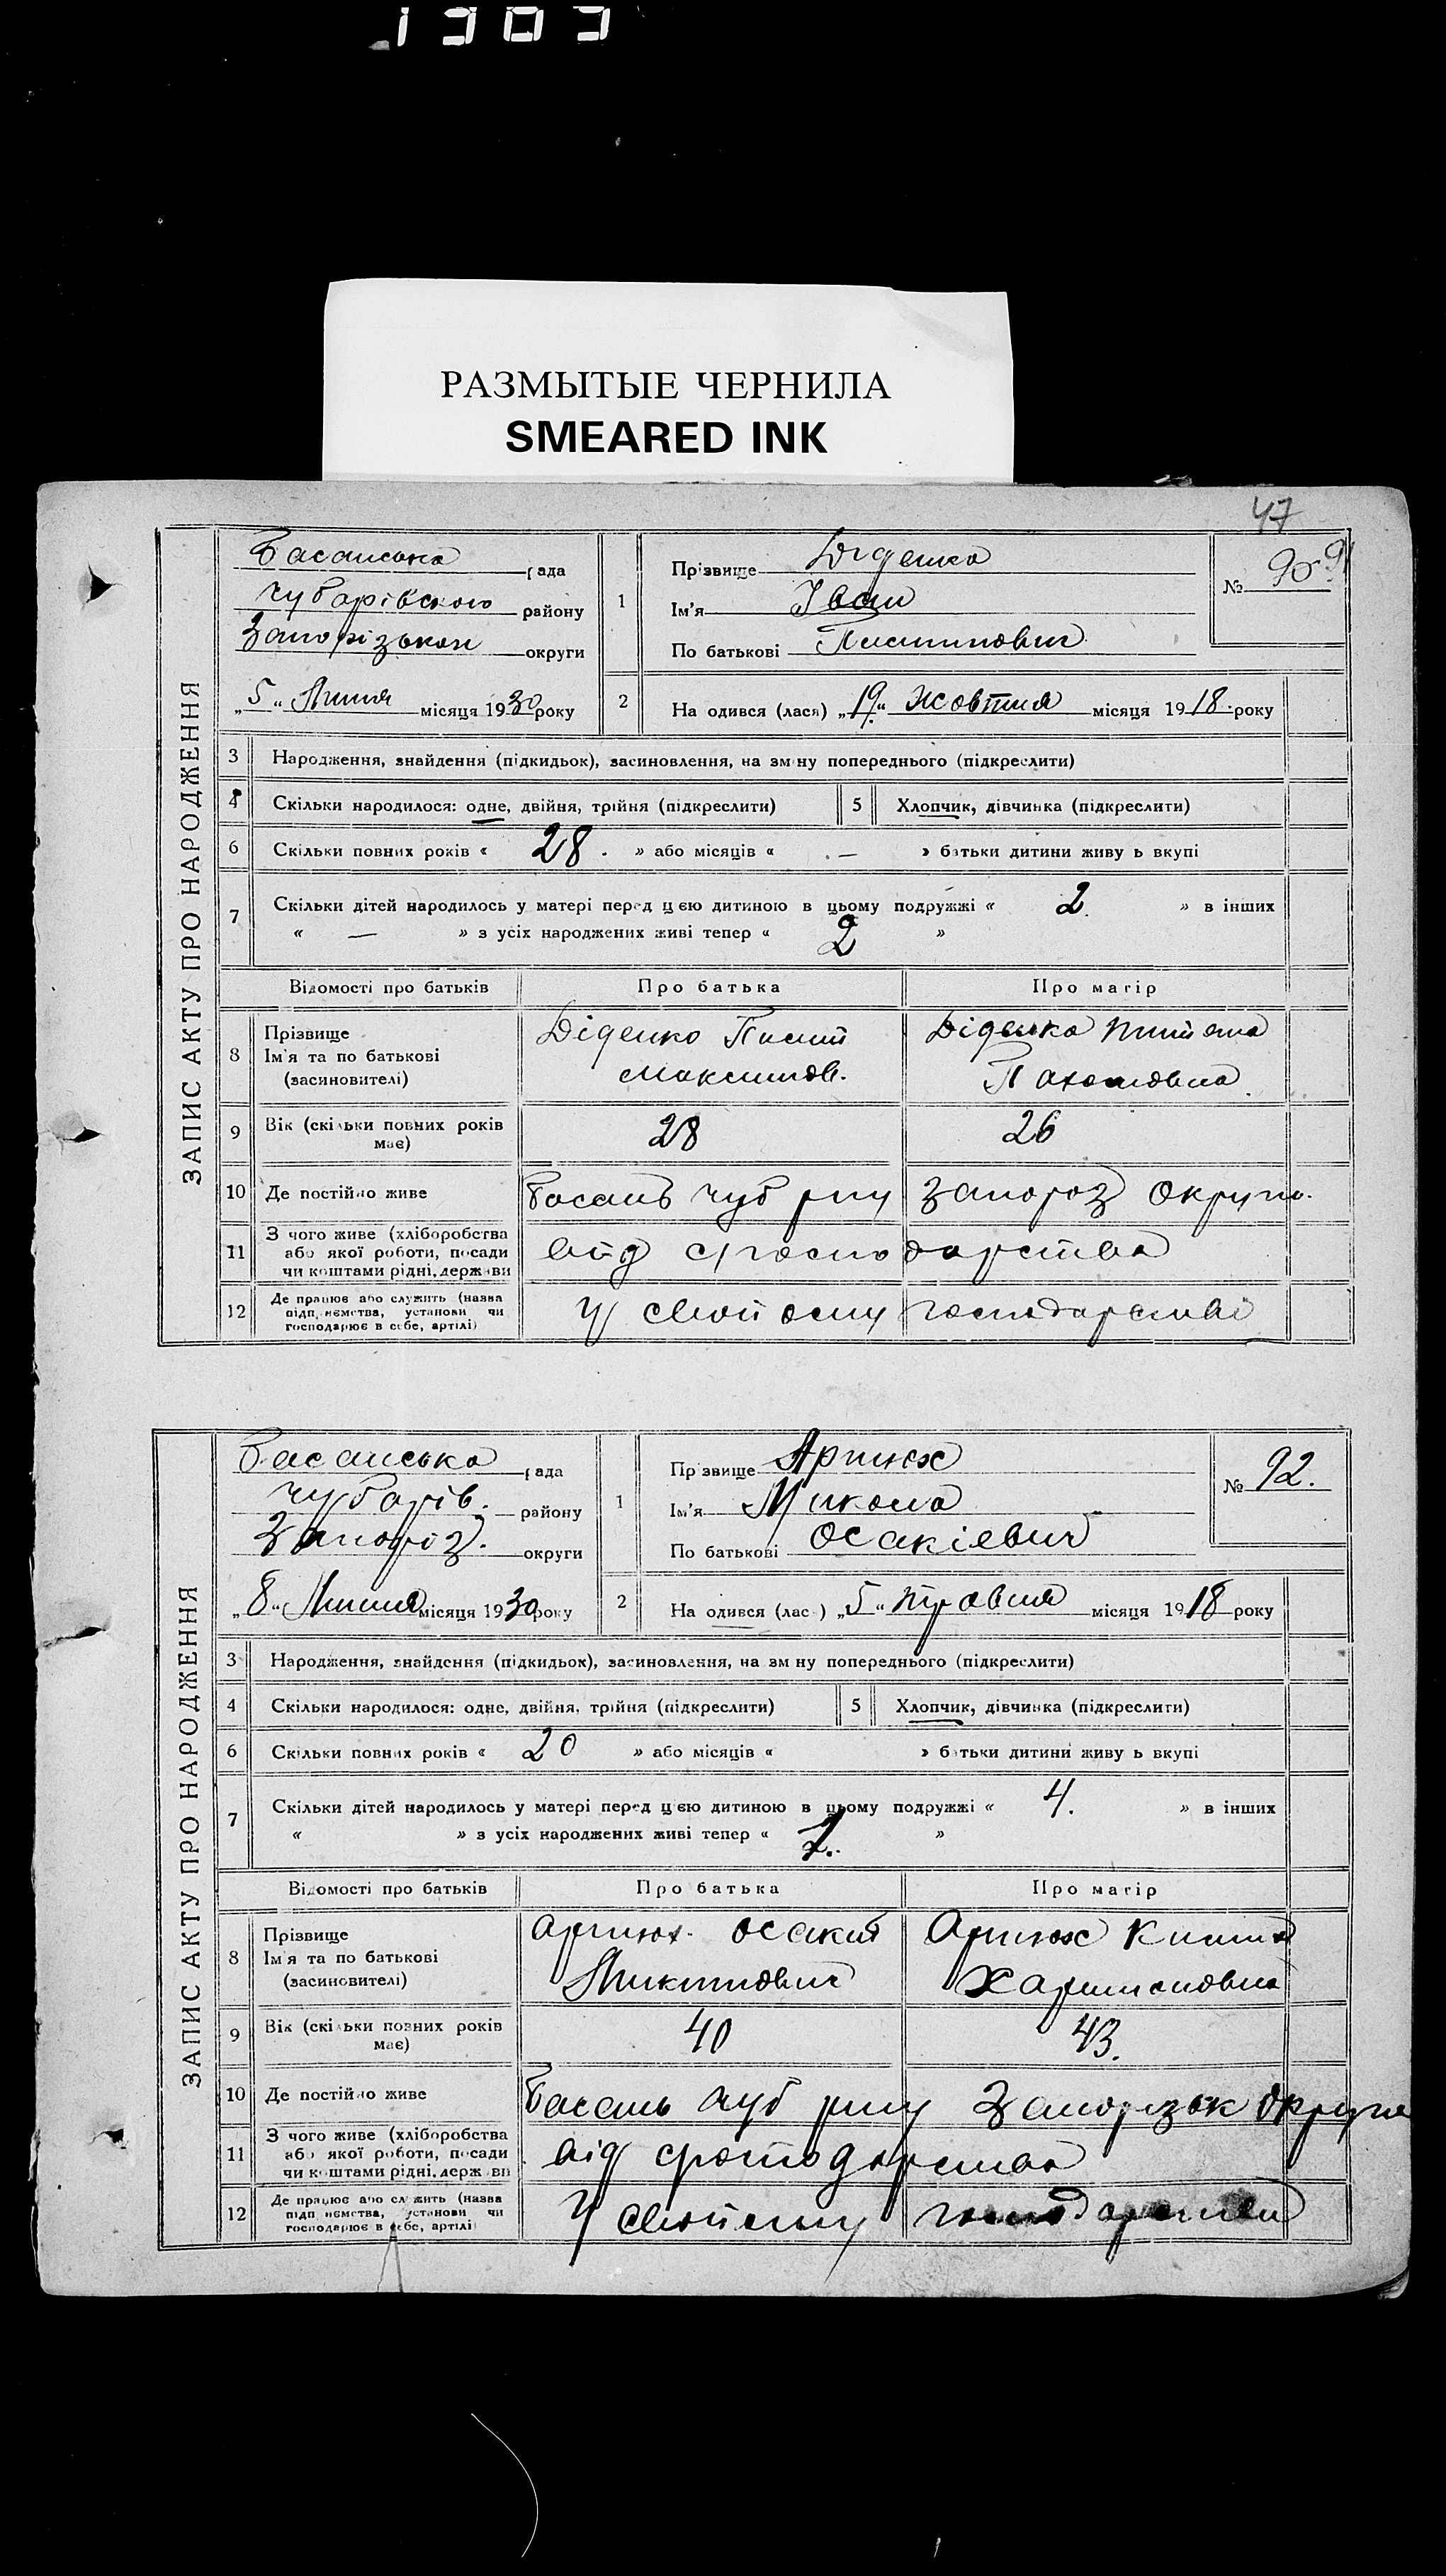 1303
РАЗМЫТЫЕ ЧЕРНИЛА
SMEARED INK
47
ЗАПИС АКТУ ПРО НАРОДЖЕННЯ
Басанська рада
Чубарівського району
Запорізької округи
„5“ Липня місяця 1930 року
1
Прізвище Діденко
Ім'я Іван
По батькові
№ 90 91
2
На одився (лася) „19“ Жовтня місяця 1918 року
3 Народження, знайдення (підкидьок), засиновлення, на зміну попереднього (підкреслити)
4 Скільки народилося: одне, двійня, трійня (підкреслити)
5 Хлопчик, дівчинка (підкреслити)
6 Скільки повних років « 28. » або місяців « — » батьки дитини живу ь вкупі
7 Скільки дітей народилось у матері перед цією дитиною в цьому подружжі « 2. » в інших
« — » з усіх народжених живі тепер « 2 »
Відомості про батьків Про батька Про матір
8 Прізвище
Ім'я та по батькові
(засиновителі)
Діденко
Максимов.
Діденко
Пахомовна
9 Вік (скільки повних років має)
28
26
10 Де постійно живе
Басань Чуб р-ну Запороз Округи.
11 З чого живе (хліборобства
або якої роботи, посади
чи коштами рідні, держави
від с/господарства
12 Де працює або служить (назва
підприємства, установи чи
господарює в себе, артілі)
У свойому господарстві
ЗАПИС АКТУ ПРО НАРОДЖЕННЯ
Басанська рада
Чубарів. району
Запоріз. округи
„8“ Липня місяця 1930 року
1
Прізвище Артюх
Ім'я Микола
По батькові Осакієвич
№ 92.
2
На одився (лас ) „5“ травня місяця 1918 року
3 Народження, знайдення (підкидьок), засиновлення, на зміну попереднього (підкреслити)
4 Скільки народилося: одне, двійня, трійня (підкреслити)
5 Хлопчик, дівчинка (підкреслити)
6 Скільки повних років « 20 » або місяців « » батьки дитини живу ь вкупі
7 Скільки дітей народилось у матері перед цією дитиною в цьому подружжі « 4. » в інших
« » з усіх народжених живі тепер « »
Відомості про батьків Про батька Про матір
8 Прізвище
Ім'я та по батькові
(засиновителі)
Артюх Осакій
Микитович
Артюх
Харитоновна
9 Вік (скільки повних років має)
40
43.
10 Де постійно живе
Басань Чуб р-ну Запорізьк Округи
11 З чого живе (хліборобства
або якої роботи, посади
чи коштами рідні, держави
від с/господарства
12 Де працює або служить (назва
підприємства, установи чи
господарює в себе, артілі)
У свойому господарстві